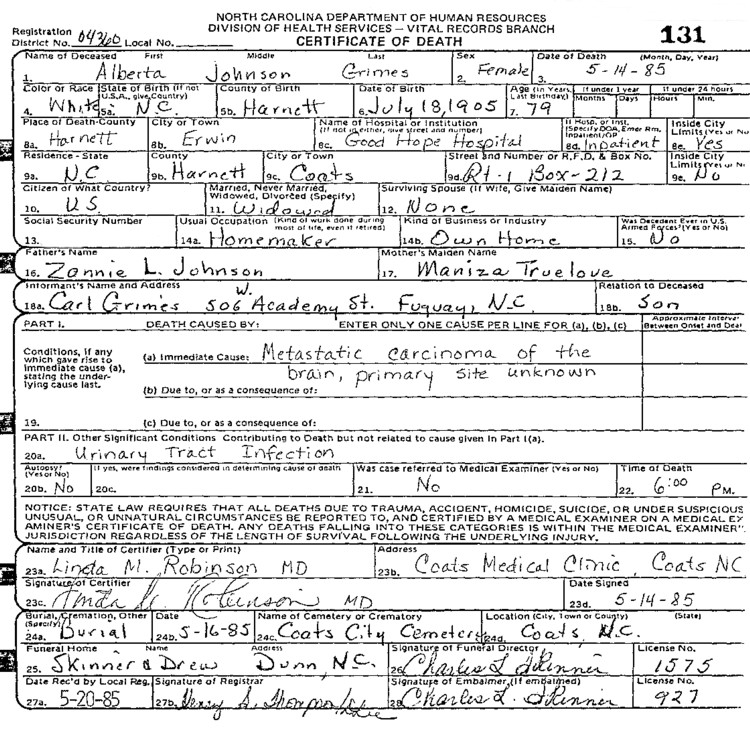 NORTH CAROLINA DEPARTMENT OF HUMAN RESOURCES
DIVISION OF HEALTH SERVICES — VITAL RECORDS BRANCH
CERTIFICATE OF DEATH
131
Registration District No. 04360 Local No.
Name of Deceased First Middle Last Sex Date of Death (Month, Day, Year)
1. Alberta Johnson Grimes 2. Female 3. 5-14-85
Color or Race State of Birth (If not U.S.A., give Country) County of Birth Date of Birth Age (In Years, Last Birthday) If under 1 year If under 24 hours
Months Days Hours Min.
4. White 5a. N.C. 5b. Harnett 6. July 18, 1905 7. 79
Place of Death-County City or Town Name of Hospital or Institution (If not in either, give street and number) If Hosp. or Inst. (Specify DOA, Emer Rm, Inpatient/OP Inside City Limits (Yes or No
8a. Harnett 8b. Erwin 8c. Good Hope Hospital 8d. Inpatient 8e. Yes
Residence - State County City or Town Street and Number or R.F.D. & Box No. Inside City Limits (Yes or No
9a. N.C. 9b. Harnett 9c. Coats 9d. Rt-1 Box-212 9e. No
Citizen of What Country? Married, Never Married, Widowed, Divorced (Specify) Surviving Spouse (If Wife, Give Maiden Name)
10. U.S. 11. Widowed 12. None
Social Security Number Usual Occupation (Kind of work done during most of life, even if retired) Kind of Business or Industry Was Decedent Ever in U.S. Armed Forces? (Yes or No)
13. 14a. Homemaker 14b. Own Home 15. No
Father's Name Mother's Maiden Name
16. Zannie L. Johnson 17. Maniza Truelove
Informant's Name and Address Relation to Deceased
18a. Carl Grimes 506 W. Academy St. Fuquay, N.C. 18b. Son
PART I. DEATH CAUSED BY: ENTER ONLY ONE CAUSE PER LINE FOR (a), (b), (c) Approximate Interval Between Onset and Deat
Conditions, if any which gave rise to immediate cause (a), stating the underlying cause last.
(a) Immediate Cause: Metastatic carcinoma of the
brain, primary site unknown
(b) Due to, or as a consequence of:
19. (c) Due to, or as a consequence of:
PART II. Other Significant Conditions Contributing to Death but not related to cause given in Part I(a).
20a. Urinary Tract Infection
Autopsy? (Yes or No) If yes, were findings considered in determining cause of death Was case referred to Medical Examiner (Yes or No) Time of Death
20b. No 20c. 21. No 22. 6:00 P.M.
NOTICE: STATE LAW REQUIRES THAT ALL DEATHS DUE TO TRAUMA, ACCIDENT, HOMICIDE, SUICIDE, OR UNDER SUSPICIOUS
UNUSUAL, OR UNNATURAL CIRCUMSTANCES BE REPORTED TO, AND CERTIFIED BY A MEDICAL EXAMINER ON A MEDICAL EX
AMINER'S CERTIFICATE OF DEATH. ANY DEATHS FALLING INTO THESE CATEGORIES IS WITHIN THE MEDICAL EXAMINER'
JURISDICTION REGARDLESS OF THE LENGTH OF SURVIVAL FOLLOWING THE UNDERLYING INJURY.
Name and Title of Certifier (Type or Print) Address
23a. Linda M. Robinson MD 23b. Coats Medical Clinic, Coats NC
Signature of Certifier Date Signed
23c. Linda M. Robinson MD 23d. 5-14-85
Burial, Cremation, Other (Specify) Date Name of Cemetery or Crematory Location (City, Town or County) (State)
24a. Burial 24b. 5-16-85 24c. Coats City Cemetery 24d. Coats, N.C.
Funeral Home Name Address Signature of Funeral Director License No.
25. Skinner & Drew Dunn, N.C. 26. Charles L. Skinner 1575
Date Rec'd by Local Reg. Signature of Registrar Signature of Embalmer, (If embalmed) License No.
27a. 5-20-85 27b. Henry S. Thompson 28. Charles L. Skinner 927